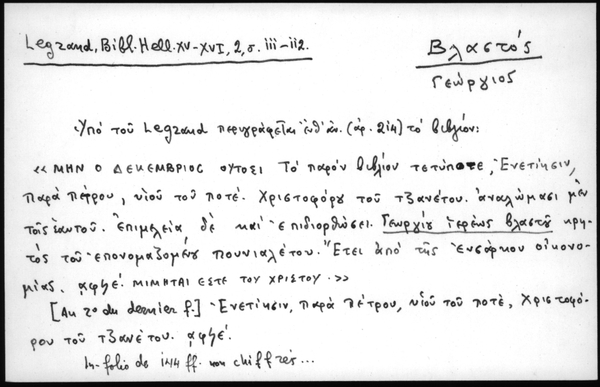 Legrand, Bibl. Hell. XV-XVI, 2, σ. 111-112.
Βλαστός
Γεώργιος
Ὑπό τοῦ Legrand περιγράφεται ἐνθ' ἀν. (ἀρ. 214) τό βιβλίον:
«ΜΗΝ Ο ΔΕΚΕΜΒΡΙΟΣ ΟΥΤΟΣΙ Τό παρόν βιβλίον τετύπωται, Ἐνετίησιν,
παρά Πέτρου, υἱοῦ τοῦ ποτέ. Χριστοφόρου τοῦ τζανέτου. ἀναλώμασι μέν
τοῖς ἑαυτοῦ. Ἐπιμελεία δέ καί ἐπιδιορθώσει. Γεωργίου ἱερέως βλαστοῦ κρη-
τός τοῦ ἐπονομαζομένου πουνιαλέτου. Ἔτει ἀπό τῆς ἐνσάρκου οἰκονο-
μίας. αφξέ. ΜΙΜΗΤΑΙ ΕΣΤΕ ΤΟΥ ΧΡΙΣΤΟΥ.»
[Au r° du dernier f.] Ἐνετίησιν, παρά Πέτρου, υἱοῦ τοῦ ποτέ, Χριστοφό-
ρου τοῦ τζανέτου. αφξέ.
In-folio de 144 ff. non chiffrés...